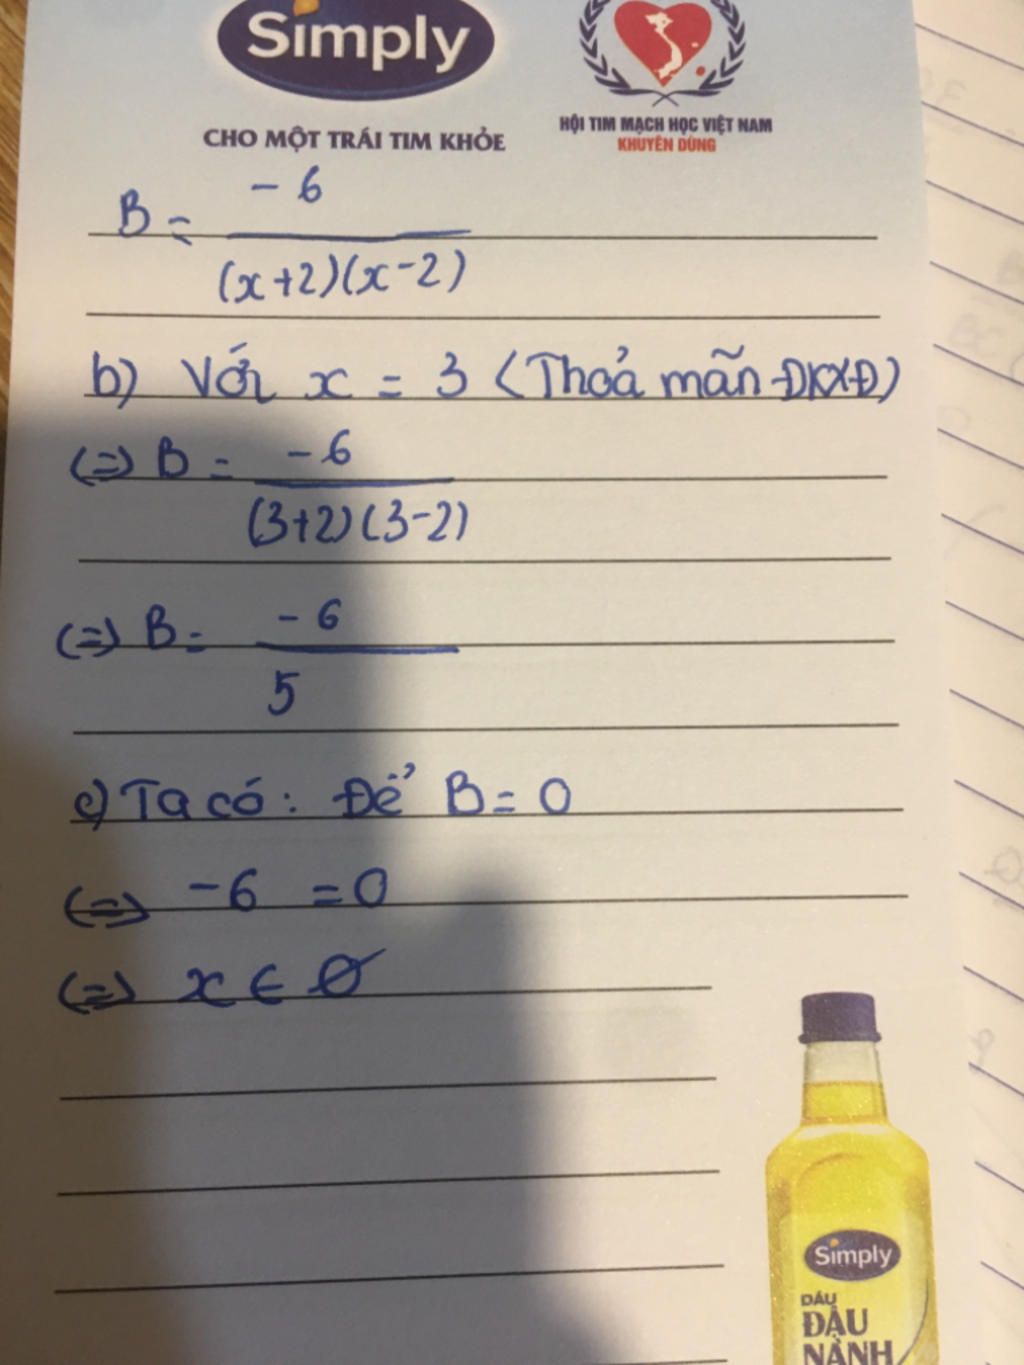 Simply
CHO MỘT TRÁI TIM KHỎE
HỘI TIM MẠCH HỌC VIỆT NAM
KHUYÊN DÙNG
B = -6
(x+2)(x-2)
b) Với x = 3 (Thoả mãn ĐKXĐ)
(=) B = -6
(3+2)(3-2)
(=) B = -6
5
c) Ta có: Để B = 0
(=) -6 = 0
(=) x ∈ Ø
Simply
DẦU
ĐẬU
NÀNH